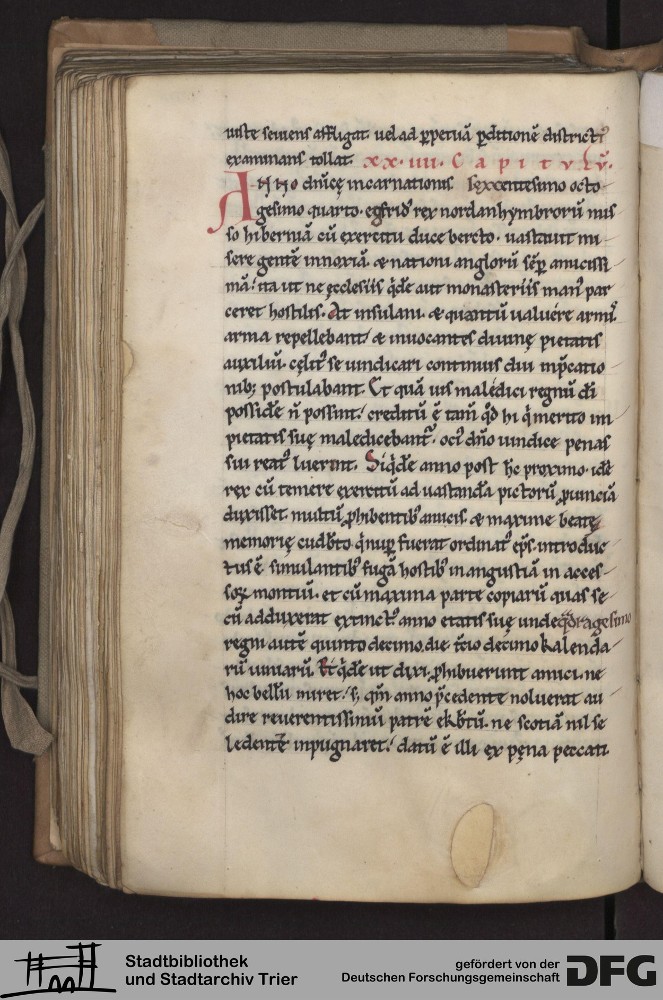 iuste seuiens affligat uel ad ꝑpetuā ꝑditionē districti᷒
examinans tollat. xx.iiii. Capitulū.
Anno dn̄icę incarnationis sexcentesimo octo-
gesimo quarto. egfrid᷒ rex nordanhymbrorū mis
so hiberniā cū exercitu duce berto. uastauit mi-
sere gentē innoxiā. & nationi anglorū semꝑ amicissi
mā. ita ut ne ęcclesiis q̇dē aut monasteriis man᷒ par
ceret hostilis. At insulani. & quantū ualuere armis.
arma repellebant. & inuocantes diuinę pietatis
auxiliū. cęlit᷒ se uindicari continuis diu imp̄catio
nib; postulabant. Et quā uis maledici regnū dī
possidē n̄ possint. creditū ē tam̄ qd̄ hi q̇ merito im
pietatis suę maledicebant᷒. oci᷒ dn̄o uindice penas
sui reat᷒ luerent. Siq̇dē anno post hc̄ proximo. idē
rex cū temere exercitū ad uastandā pictorū ꝓuinciā
duxisset multū ꝓhibentib᷒ amicis. & maxime beatę
memorię cudb̄to q̇ nuꝑ fuerat ordinat᷒ ep̄s. introduc
tus ē simulantib᷒ fugā hostib᷒ in angustiā in acces-
soꝝ montiū. et cū maxima parte copiarū quas se-
cū adduxerat extinct᷒ anno etatis suę undeq̄dragesimo
regni autē quinto decimo. die tcio decimo kalenda-
rū iuniarū. Et q̇dē ut dixi. ꝓhibuerunt amici. ne
hoc bellū iniret. s; qm̄ anno p̄cedente noluerat au
dire reuerentissimū patrē ekb̄tū. ne scotiā nil se
ledentē inpugnaret. datū ē illi ex pęna peccati
Stadtbibliothek
und Stadtarchiv Trier
gefördert von der
Deutschen Forschungsgemeinschaft
DFG